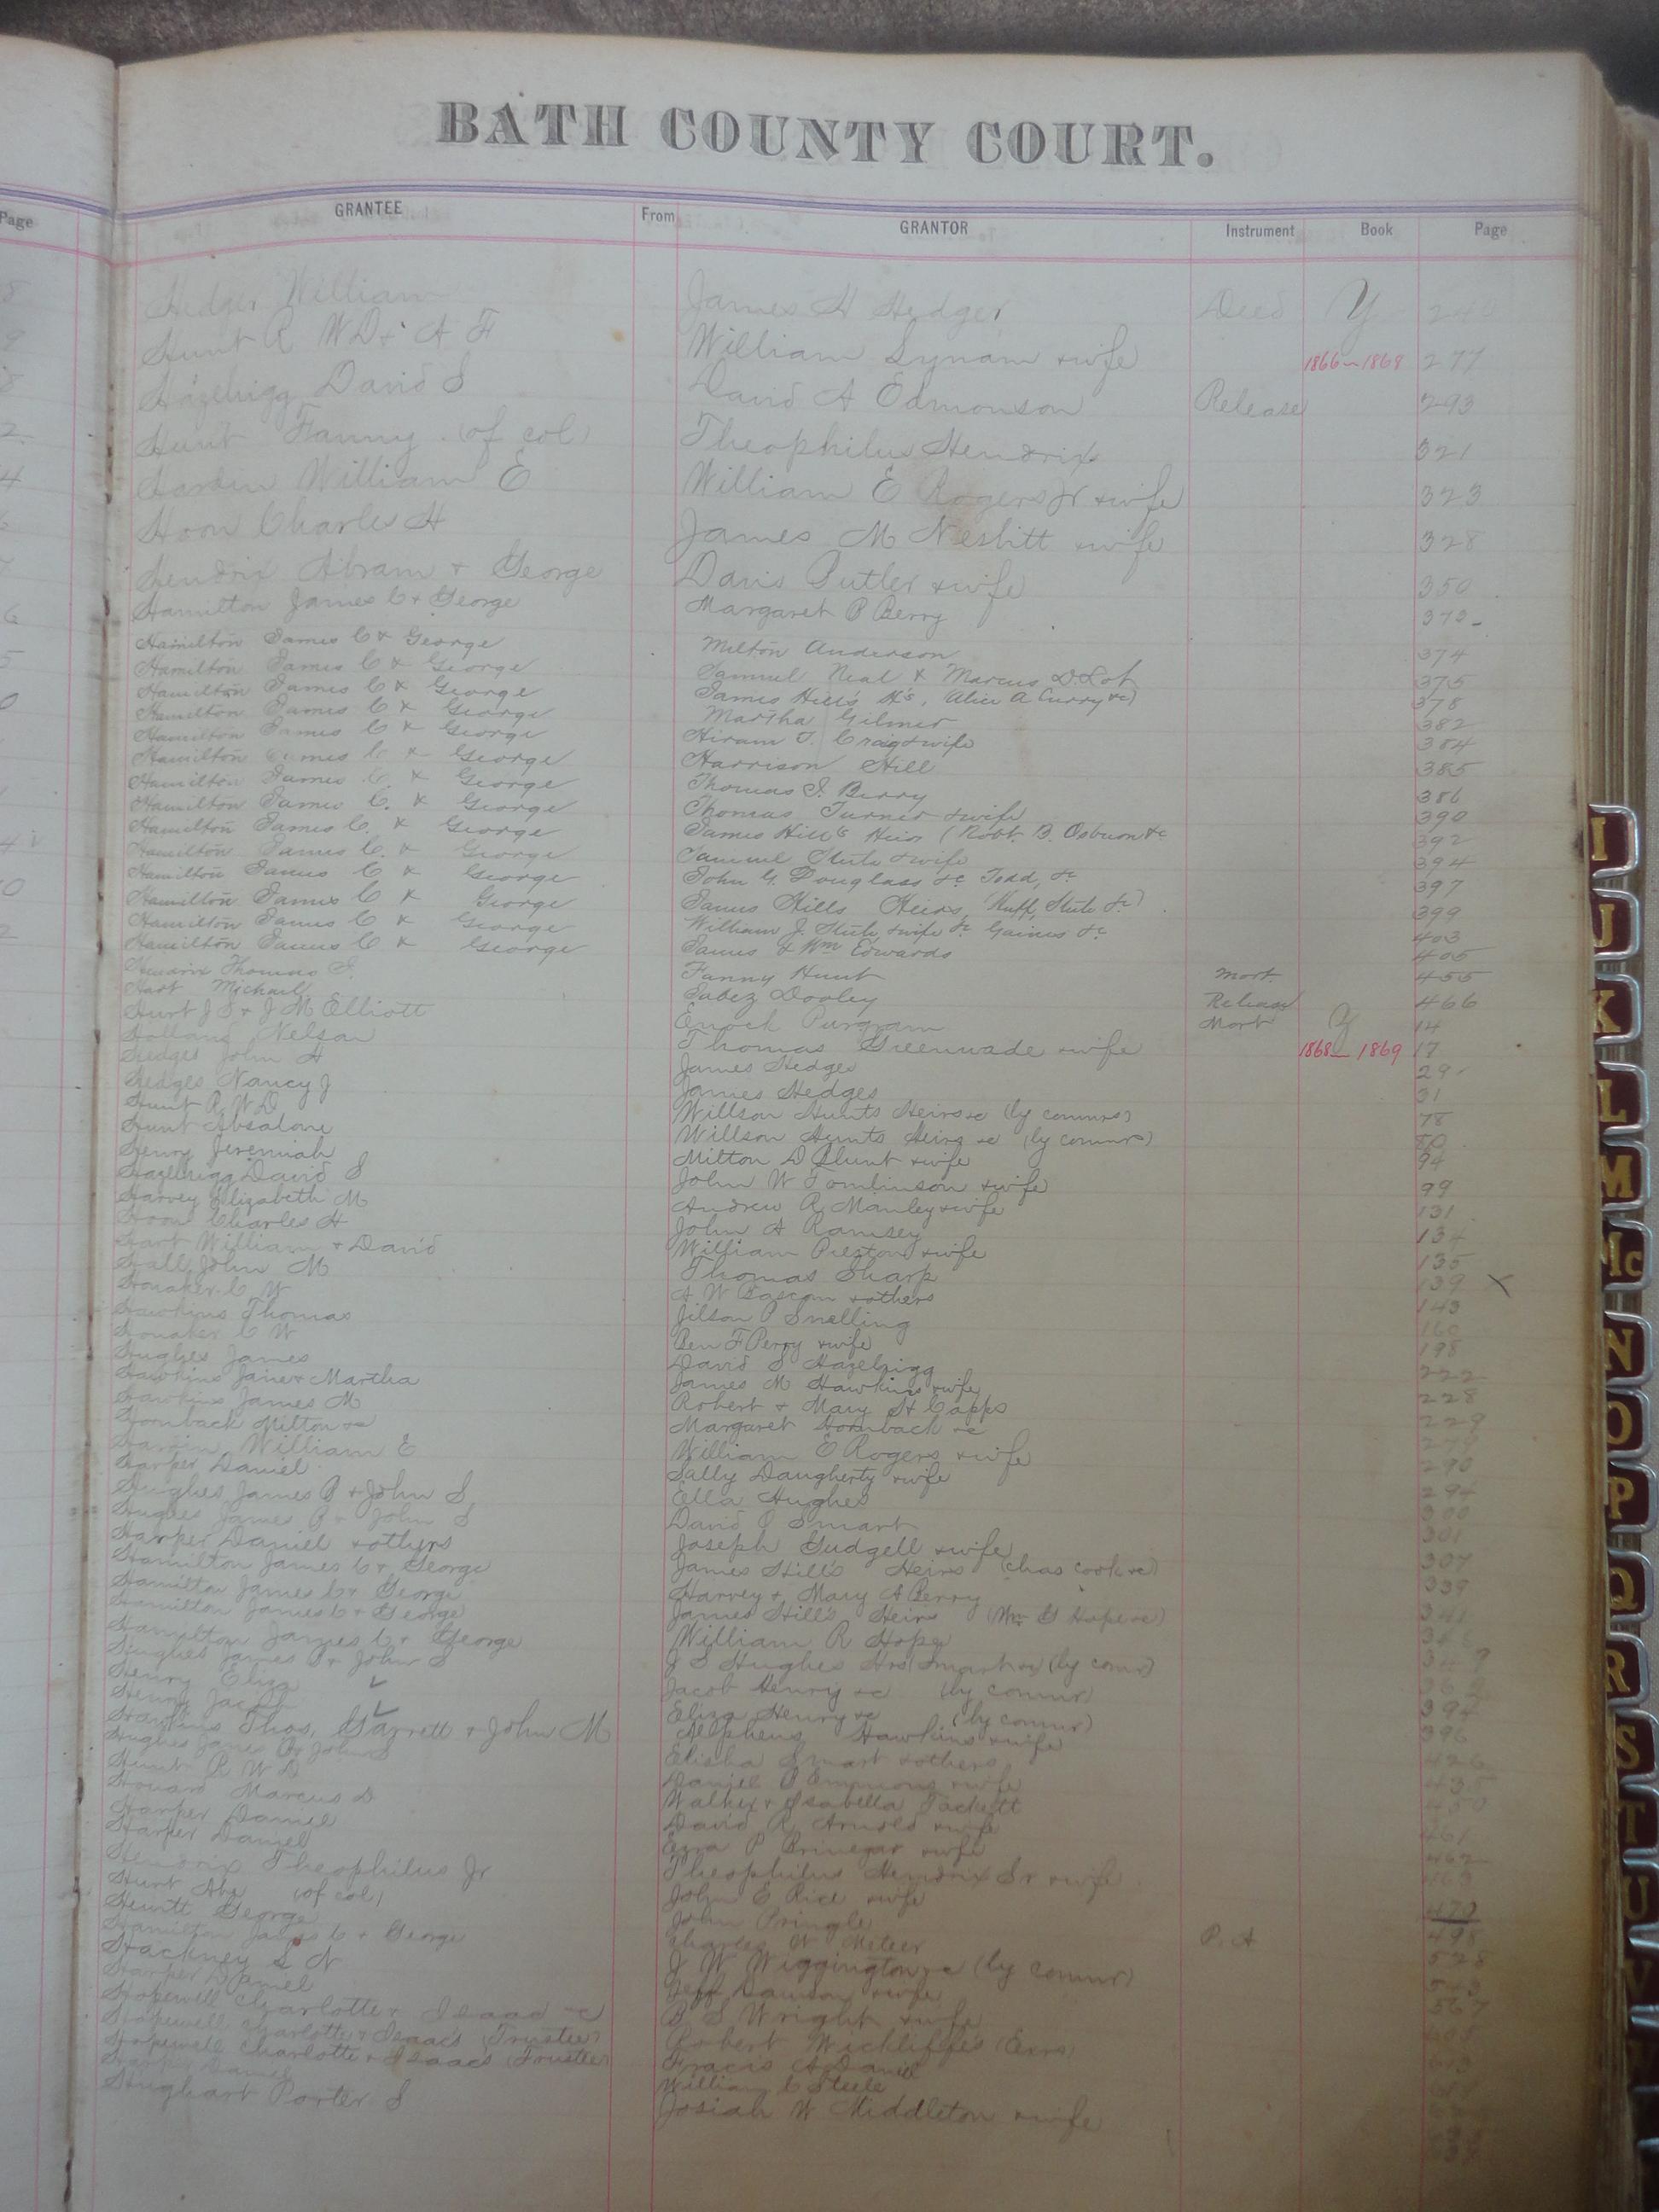 Page
BATH COUNTY COURT.
GRANTEE From GRANTOR Instrument Book Page
Hedger William James H Hedger Deed Y
Hunt R W D & A F William Lynam & wife 1866-1868 277
Hazelrigg David S David A Edmonson Release 293
Hunt Fanny (of col) Theophilus Hendrix 321
William E William E Rogers Jr & wife 323
Hoon Charles H James M Nesbitt & wife 328
Hendrix Abram & George Davis Butler & wife 350
Hamilton James C & George Margaret P Berry 372
Hamilton James C & George Milton Anderson 374
Hamilton James C & George Samuel Neal & Marcus D 375
Hamilton James C & George James Hill's Hs, Alice A Curry &c) 378
Hamilton James C & George Martha Gilmer 382
Hamilton James C & George Hiram T. Craig & wife 384
Hamilton James C & George Harrison Hill 385
Hamilton James C. & George Thomas J. Berry 386
Hamilton James C. & George Thomas Turner & wife 390
Hamilton James C. & George James Hill's Heirs (Robt. B. Osburn &c 392
Hamilton James C. & George Samuel & wife 394
Hamilton James C & George John G. Douglass &c Todd, &c 397
Hamilton James C & George James Hills Heirs, Huff, &c) 399
Hamilton James C & George William J. & wife &c Gaines &c 403
Hamilton James C & George James & Wm Edwards 405
Hendrix Thomas J. Fanny Hunt Mort. 455
Hart Michael Jabez Dooley Release 466
Hurt J S & J M Elliott Enoch Pergram Mort Z 14
Holland Nelson Thomas Greenwade & wife 1868-1869 17
Hedges John H James Hedges 29
Hedges Nancy J James Hedges 31
Hunt R W D Willson Hunts Heirs &c (by commrs) 78
Hunt Absalone Willson Hunts Heirs &c (by commrs) 80
Henry Jeremiah Milton D Hunt & wife 94
Hazelrigg David S John W Tomlinson & wife 99
Harvey Elizabeth M Andrew R Manley & wife 131
Hoon Charles H John A Ramsey 134
Hart William & David William Preston & wife 135
Hall John M Thomas Sharp 139 X
Honaker C W A W Bascom & others 143
Hawkins Thomas Jilson P Snelling 160
Honaker C W Ben F Perry & wife 198
Hughes James David S Hazelrigg 222
Hawkins Jane & Martha James M Hawkins & wife 228
Hawkins James M Robert & Mary H Capps 229
Hornback Milton &c Margaret Hornback &c
William E William E Rogers & wife 290
Harper Daniel Sally Daugherty & wife 294
Hughes James P & John S Ella Hughes 300
Hughes James P & John S David O Smart 301
Harper Daniel & others Joseph Gudgell & wife 307
Hamilton James C & George James Hill's Heirs (Chas Cook &c) 339
Hamilton James C & George Harvey & Mary A Berry 341
Hamilton James C & George James Hill's Heirs (Wm G Hope &c)
Hamilton James C & George William R Hope
Hughes James P & John S J S Hughes Hrs (Smart &c (by comr)
Henry Eliza Jacob Henry &c (by commr) 394
Henry Jacob Eliza Henry &c (by commr) 396
Hawkins Thos, Garrett & John M Alpheus Hawkins & wife 426
Hughes James P & John S Elisha Smart & others 435
Hunt R W D Daniel P Emmons & wife 450
Howard Marcus D Walker & Isabella Tackett 461
Harper Daniel David R Arnold & wife 462
Harper Daniel Ezra P Brinegar & wife 463
Hendrix Theophilus Jr Theophilus Hendrix Sr & wife
Hunt Abe (of col) John E Rice & wife 470
Hewitt George John Pringle 498
Hamilton James C & George Charles N Meteer P. A 528
Hackney S N J W Wiggington &c (by commr) 543
Harper Daniel Jeff Dawson & wife 567
Hopewell Charlotte & Isaac &c B S Wright & wife
Hopewell Charlotte & Isaacs (Trustee) Robert Wickliffe's (Exrs)
Hopewell Charlotte & Isaacs (Trustee) Fracis A Daniel
Harper Daniel William C Steele
Hughart Porter S Josiah W Middleton & wife
I
J
K
L
M
Mc
N
O
P
Q
R
S
T
U
V